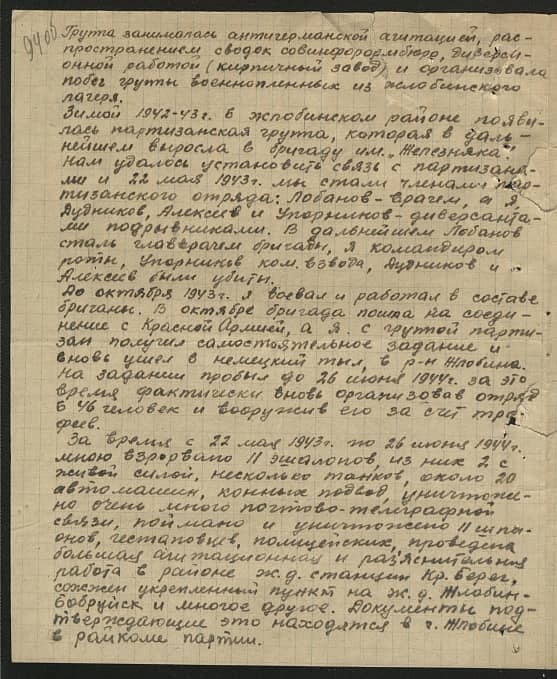 94об
Группа занималась антигерманской агитацией, рас-
пространением сводок совинформбюро, диверси-
онной работой (кирпичный завод) и организовала
побег группы военнопленных из жлобинского
лагеря.
Зимой 1942-43г. в жлобинском районе появи-
лась партизанская группа, которая в даль-
нейшем выросла в бригаду им. „Железняка".
Нам удалось установить связь с партизана-
ми и 22 мая 1943г. мы стали членами пар-
тизанского отряда: Лобанов-врачем, а я,
Дудников, Алексеев и Упорников-диверсанта-
ми подрывниками. В дальнейшем Лобанов
сталь главврачем бригады, я командиром
роты, Упорников ком. взвода, Дудников и
Алексеев были убиты.
До октября 1943г. я воевал и работал в составе
бригады. В октябре бригада пошла на соеди-
нение с Красной Армией, а я с группой парти-
зан получил самостоятельное задание и
вновь ушел в немецкий тыл, в р-н Жлобина.
На задании пробыл до 26 июня 1944г. за это
время фактически вновь организовав отряд
в 46 человек и вооружив его за счет тро-
феев.
За время с 22 мая 1943г. по 26 июня 1944г.
мною взорвано 11 эшалонов, из них 2 с
живой силой, несколько танков, около 20
автомашин, конных подвод, уничтоже-
но очень много почтово-телеграфной
связи, поймано и уничтожено 11 шпи-
онов, гестаповцев, полицейских, проведена
большая агитационная и разяснительная
работа в районе ж.д. станции Кр. Берег,
сожжен укрепленный пункт на ж.д. Жлобин-
Бобруйск и многое другое. Документы под-
тверждающие это находятся в г. Жлобине
в райкоме партии.